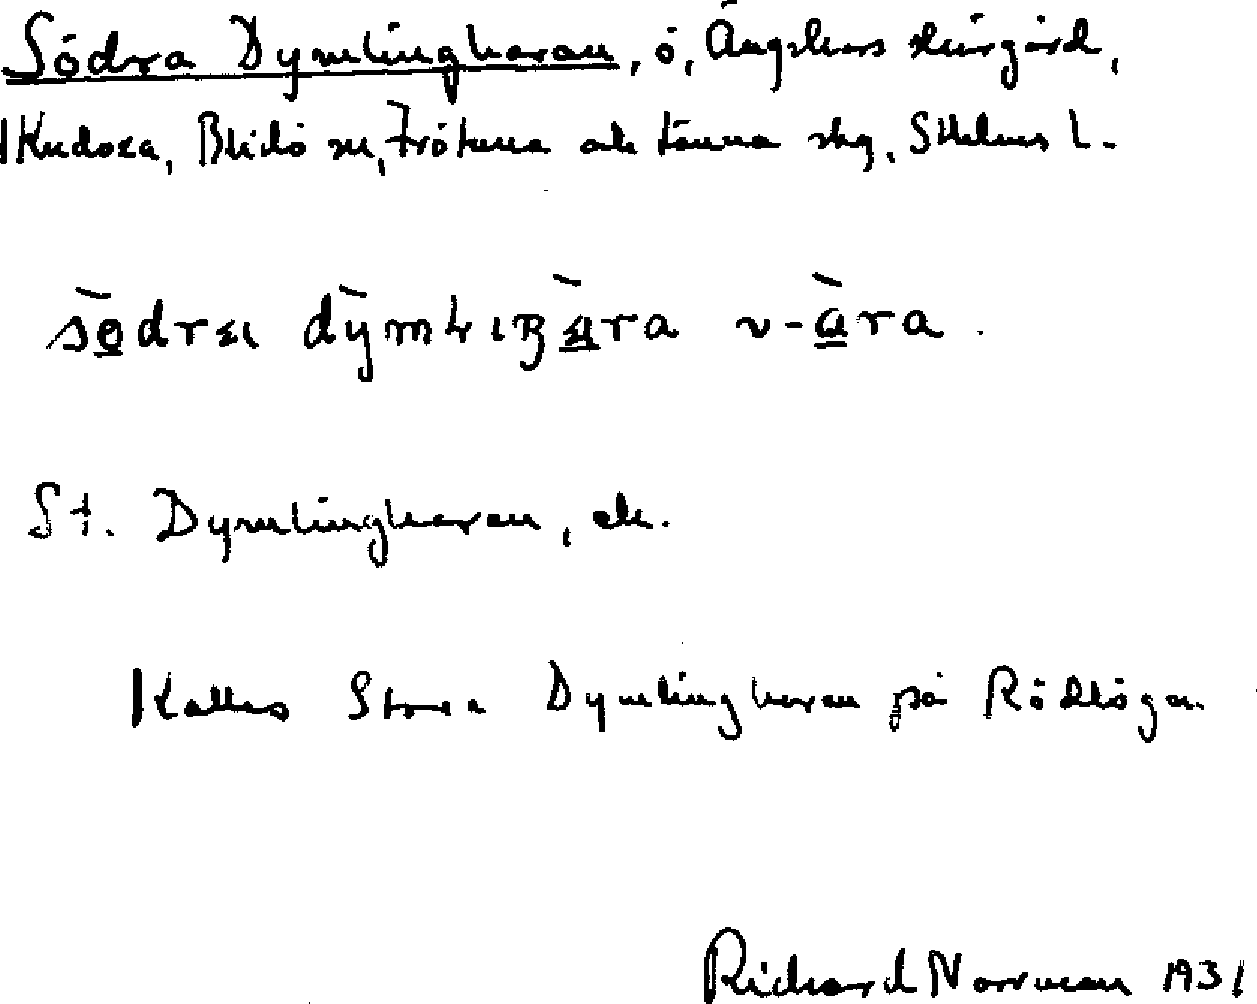 Södra Dymlingharan, ö, Ängskärs skärgård,
Kudoxa, Blidö sn, Frötuna och Länna skg, Sthlms l.
södra dỳmlıŋàra v-àra.
St. Dymlingharan, ek.
Kallas Stora Dymlingharan på Rödlögan
Richard Norrman 1931